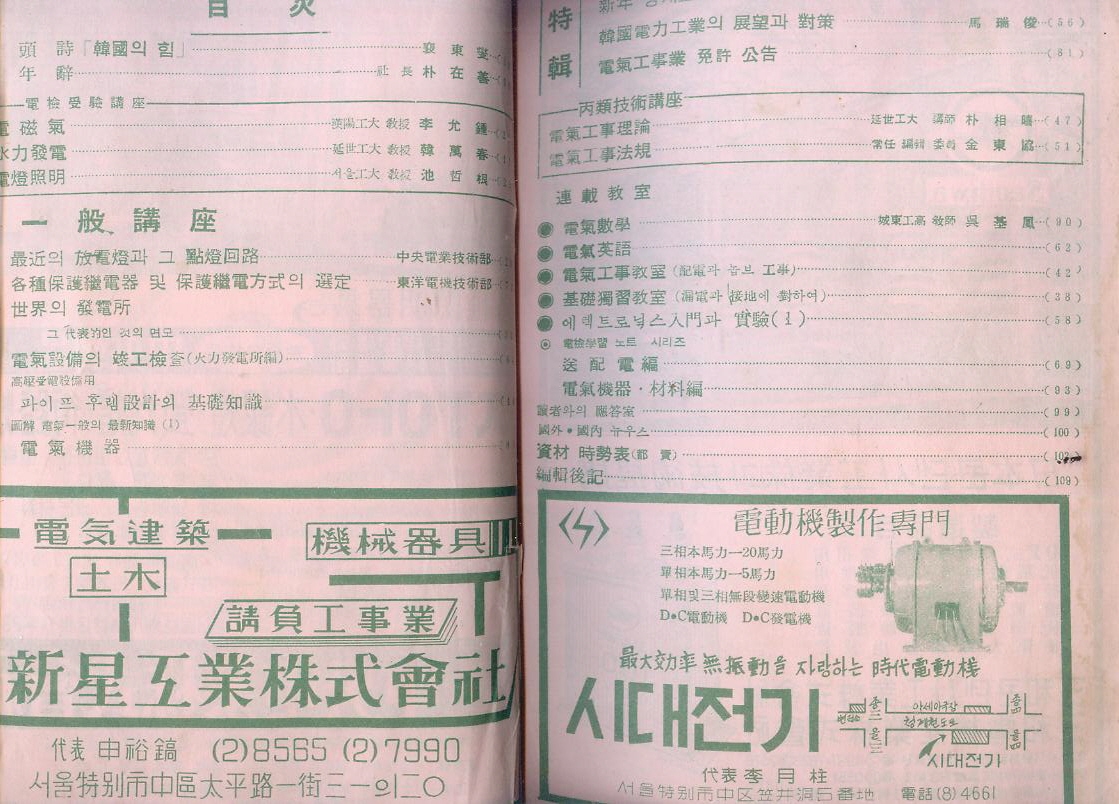 目 次
頭 詩「韓國의 힘」 東
年 辭 社 長 朴 在 善
電檢受驗講座
電 磁 氣 漢陽工大 敎授 李 允 鍾
水力發電 延世工大 敎授 韓 萬 春
電燈照明 서울工大 敎授 池 哲 根
一 般 講 座
最近의 放電燈과 그 點燈回路 中央電業技術部
各種保護繼電器 및 保護繼電方式의 選定 東洋電機技術部
世界의 發電所
그 代表的인 것의 면모
電氣設備의 竣工檢査(火力發電所編)
高壓受電設備用
파이프 후렘設計의 基礎知識
圖解 電氣一般의 最新知識 (I)
電 氣 機 器
電気建築
機械器具
土木
請負工事業
新星工業株式會社
代表 申裕鎬 (2)8565 (2)7990
서울特別市中區太平路一街三一의二〇
特輯
新年
韓國電力工業의 展望과 對策 馬 瑞 俊 (56)
電氣工事業 免許 公告 (81)
丙類技術講座
電氣工事理論 延世工大 講師 朴 相 晤 (47)
電氣工事法規 常任 編輯 委員 金 東 協 (51)
連 載 敎 室
● 電氣數學 城東工高 敎師 吳 基 鳳 (90)
● 電氣英語 (62)
● 電氣工事敎室 (配電과 옵브 工事) (42)
● 基礎獨習敎室 (漏電과 接地에 對하여) (38)
● 에렉트로닉스入門과 實驗(1) (58)
◎ 電檢學習 노트 시리즈
送 配 電 編 (69)
電氣機器・材料編 (93)
讀者와의 應答室 (99)
國外・國內 뉴우스 (100)
資材 時勢表(都 賣) (102)
編輯後記 (109)
電動機製作專門
三相本馬力—20馬力
單相本馬力—5馬力
單相및三相無段變速電動機
D•C電動機 D•C發電機
最大効率 無振動을 자랑하는 時代電動機
시대전기
종三
을三
아세아극장
청계천도로
종四
을四
시대전기
代表 李月柱
서울特別市中区笠井洞5番地 電話(8)4661